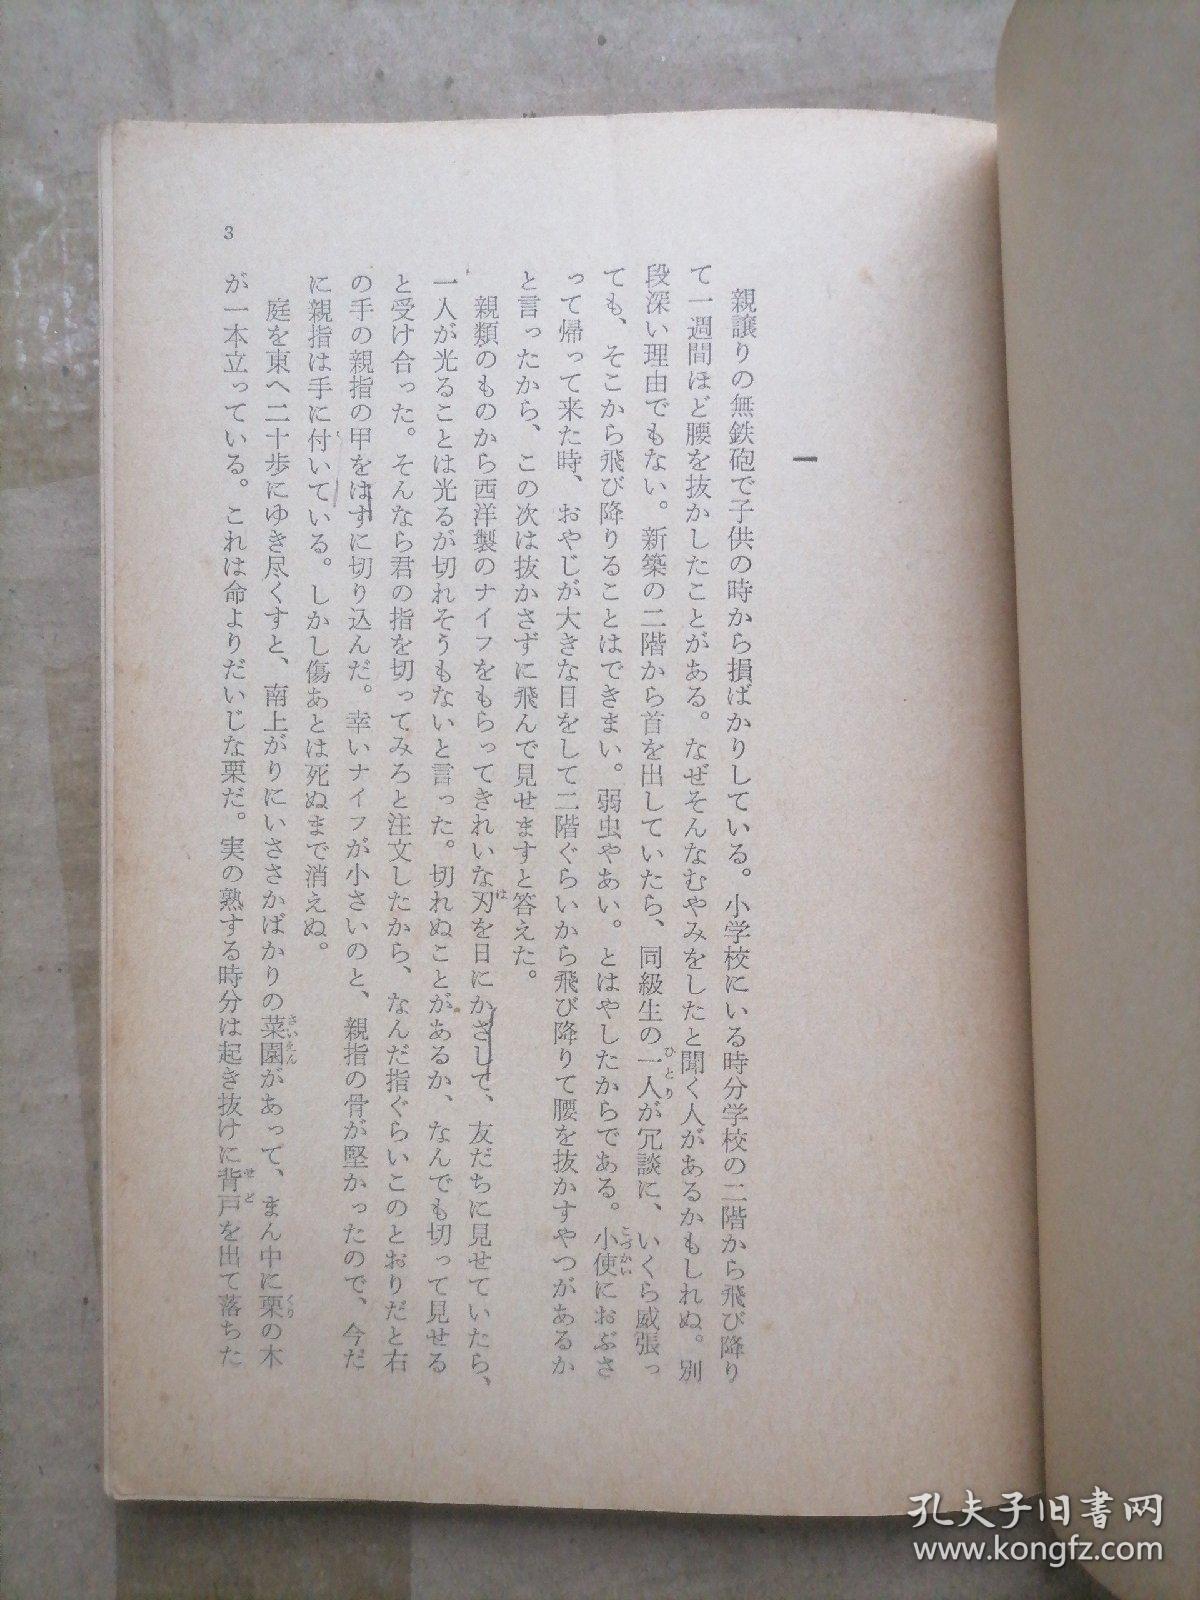 一
親譲りの無鉄砲で子供の時から損ばかりしている。小学校にいる時分学校の二階から飛び降り
て一週間ほど腰を抜かしたことがある。なぜそんなむやみをしたと聞く人があるかもしれぬ。別
段深い理由でもない。新築の二階から首を出していたら、同級生の一人が冗談に、いくら威張っ
ひとり
ても、そこから飛び降りることはできまい。弱虫やあい。とはやしたからである。小使におぶさ
こづかい
って帰って来た時、おやじが大きな目をして二階ぐらいから飛び降りて腰を抜かすやつがあるか
と言ったから、この次は抜かさずに飛んで見せますと答えた。
親類のものから西洋製のナイフをもらってきれいな刃を日にかざして、友だちに見せていたら、
は
一人が光ることは光るが切れそうもないと言った。切れぬことがあるか、なんでも切って見せる
と受け合った。そんなら君の指を切ってみろと注文したから、なんだ指ぐらいこのとおりだと右
の手の親指の甲をはすに切り込んだ。幸いナイフが小さいのと、親指の骨が堅かったので、今だ
に親指は手に付いている。しかし傷あとは死ぬまで消えぬ。
庭を東へ二十歩にゆき尽くすと、南上がりにいささかばかりの菜園があって、まん中に栗の木
さいえん
くり
が一本立っている。これは命よりだいじな栗だ。実の熟する時分は起き抜けに背戸を出て落ちた
せど
3
孔夫子旧书网
www.kongfz.com